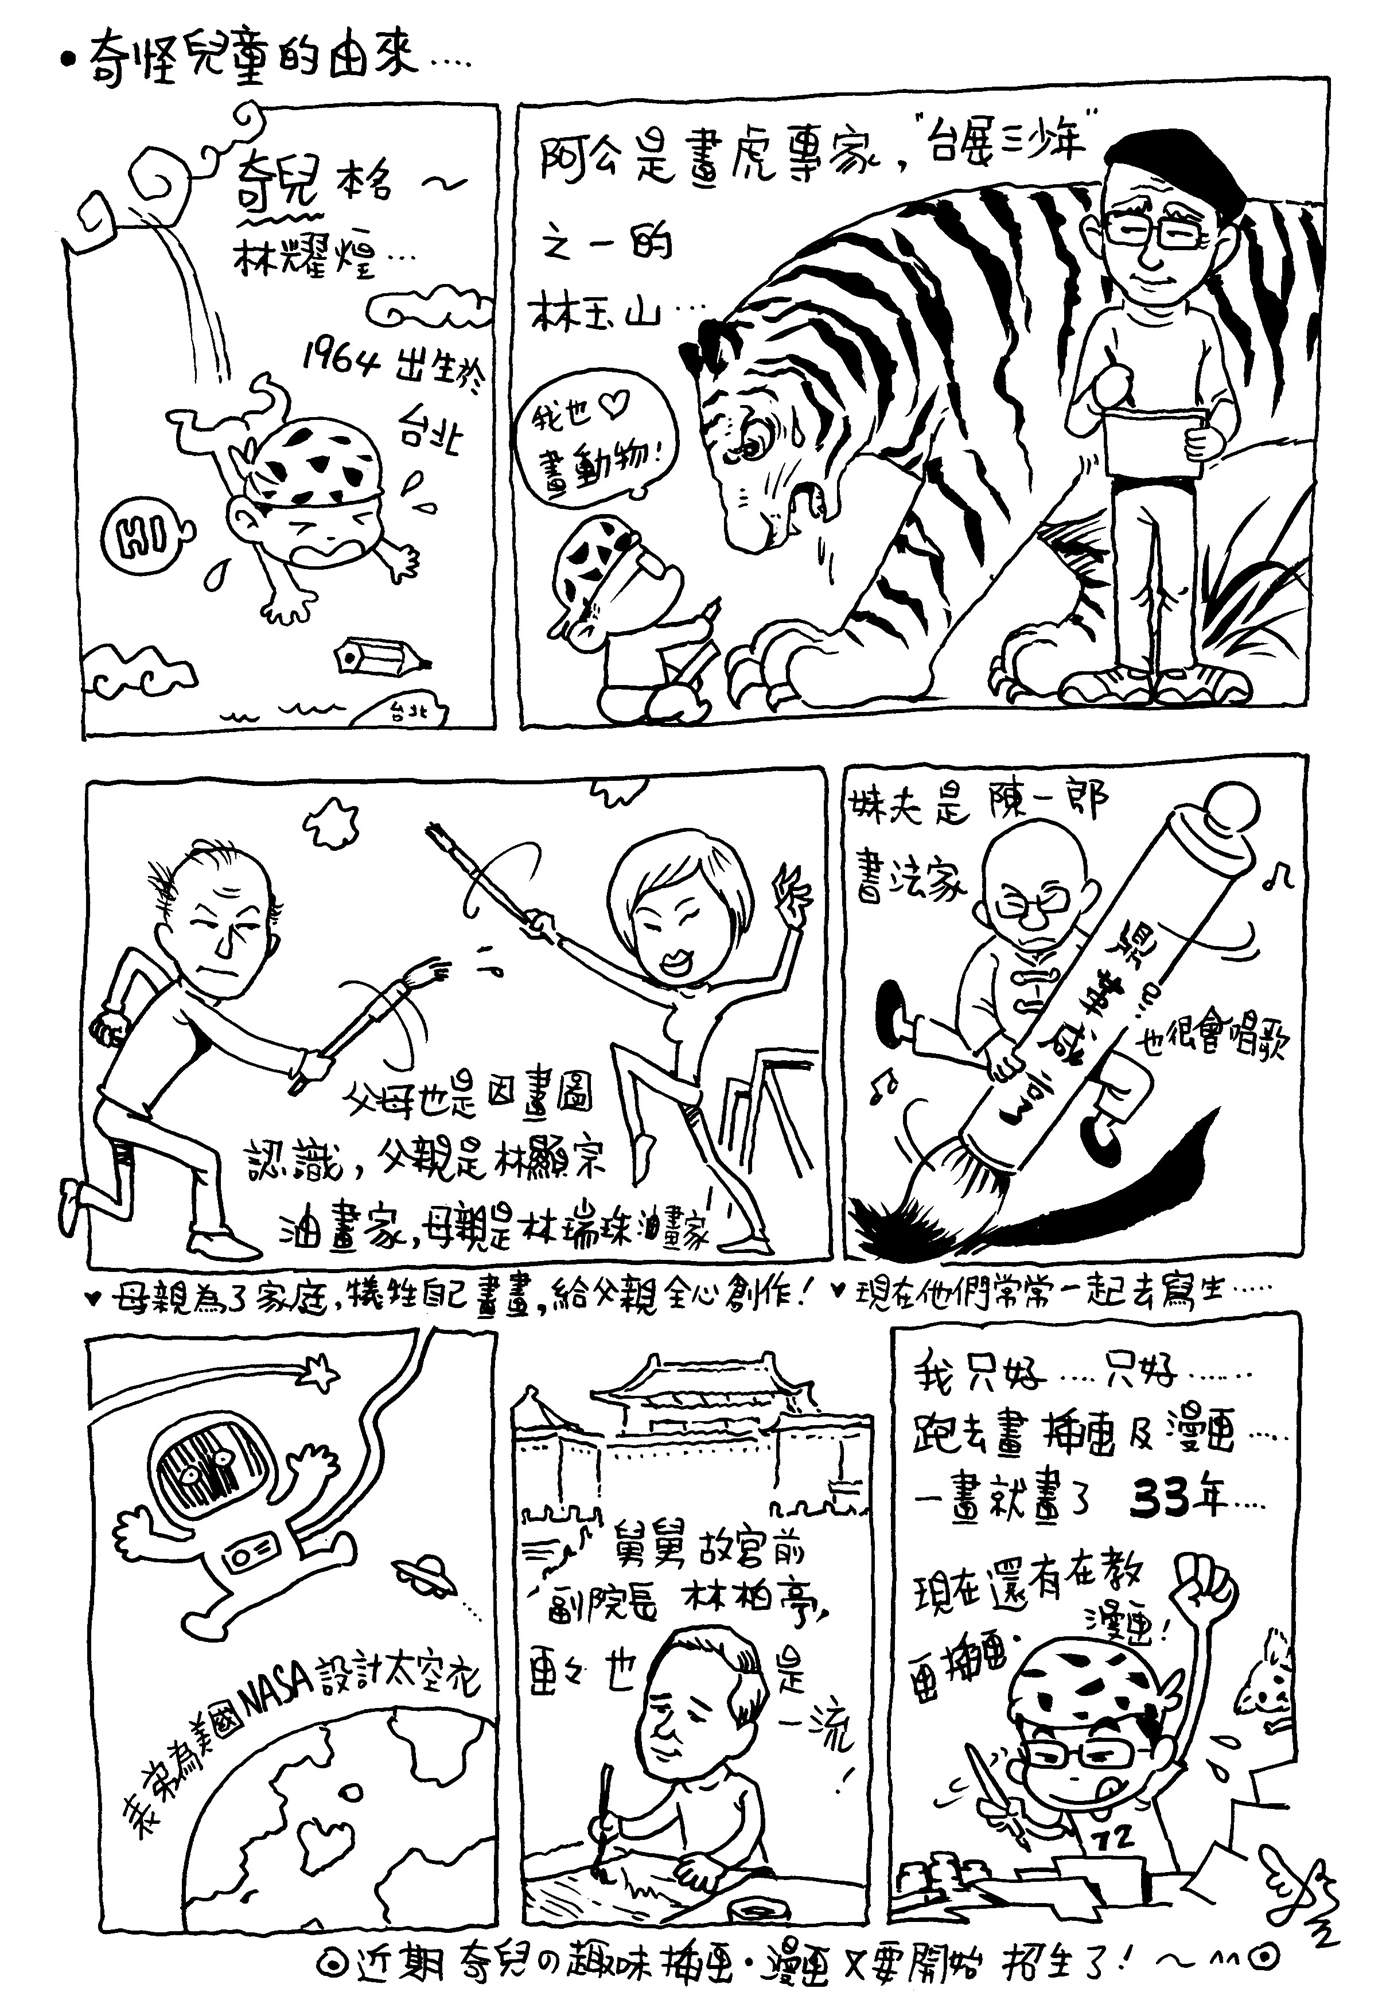 •奇怪兒童的由來....
奇兒本名～
林耀煌...
1964出生於
台北
台北
阿公是畫虎專家，"台展三少年"
之一的
林玉山...
我也♡
畫動物！
父母也是因畫圖
認識，父親是林顯宗
油畫家，母親是林瑞珠油畫家
妹夫是陳一郎
書法家
也很會唱歌
♥母親為了家庭，犧牲自己畫畫，給父親全心創作！♥現在他們常常一起去寫生.....
表弟為美國NASA設計太空衣
舅舅故宮前
副院長林柏亭，
画々也是
一流！
我只好....只好......
跑去畫插画及漫画....
一畫就畫了33年....
現在還有在教
漫画！
画插画．
72
◎近期奇兒の趣味插画．漫画又要開始招生了！～^^◎